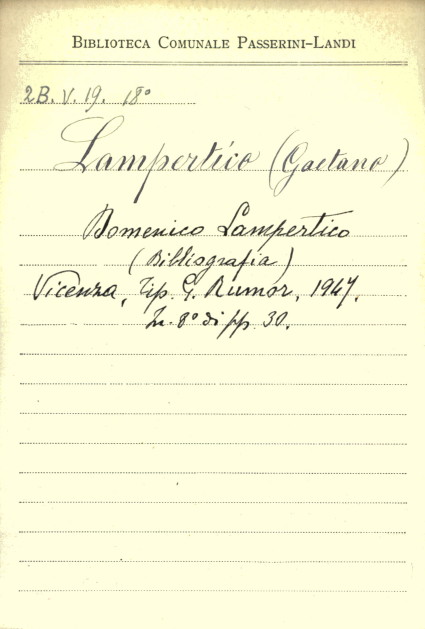 BIBLIOTECA COMUNALE PASSERINI-LANDI
2B. V. 19. 18°
Lampertico (Gaetano)
Domenico Lampertico
(Bibliografia)
Vicenza, Tip. G. Rumor, 1947.
In. 8° di pp. 30.